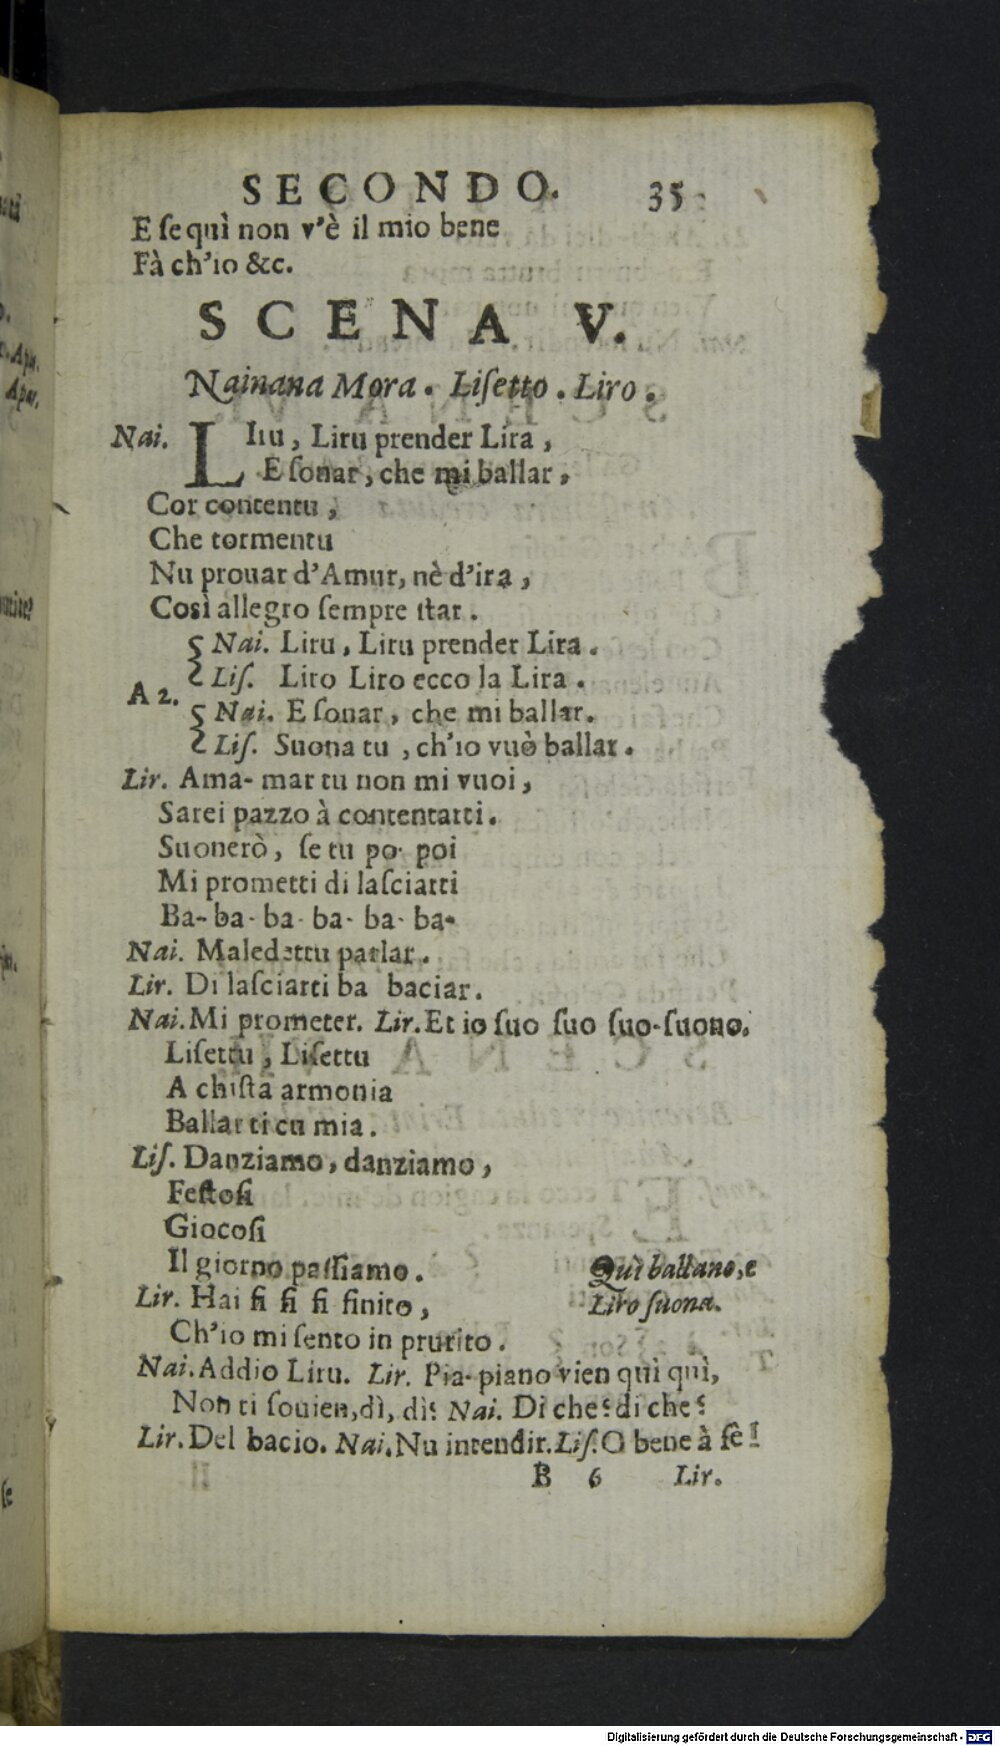 SECONDO. 35
E ſe quì non v'è il mio bene
Fà ch'io &c.
SCENA V.
Nainana Mora. Liſetto. Liro.
Nai. LIru, Liru prender Lira,
E ſonar, che mi ballar,
Cor contentu,
Che tormentu
Nu prouar d'Amur, nè d'ira,
Così allegro ſempre ſtar.
Nai. Liru, Liru prender Lira.
Liſ. Liro Liro ecco la Lira.
A 2.
Nai. E ſonar, che mi ballar.
Liſ. Suona tu, ch'io vuò ballar.
Lir. Ama- mar tu non mi vuoi,
Sarei pazzo à contentarti.
Suonerò, ſe tu po- poi
Mi prometti di laſciarti
Ba- ba- ba- ba- ba- ba-
Nai. Maledettu parlar.
Lir. Di laſciarti ba baciar.
Nai. Mi prometer. Lir. Et io ſuo ſuo ſuo-ſuono.
Liſettu, Liſettu
A chiſta armonia
Ballar ti cu mia.
Liſ. Danziamo, danziamo,
Feſtoſi
Giocoſi
Il giorno paſſiamo. Quì ballano, e
Lir. Hai ſi ſi ſi finito, Liro ſuona.
Ch'io mi ſento in prurito.
Nai. Addio Liru. Lir. Pia-piano vien quì quì,
Non ti ſouien, dì, dì? Nai. Di che? di che?
Lir. Del bacio. Nai. Nu intendir. Liſ. O bene à fè!
B 6 Lir.
Digitalisierung gefördert durch die Deutsche Forschungsgemeinschaft - DFG